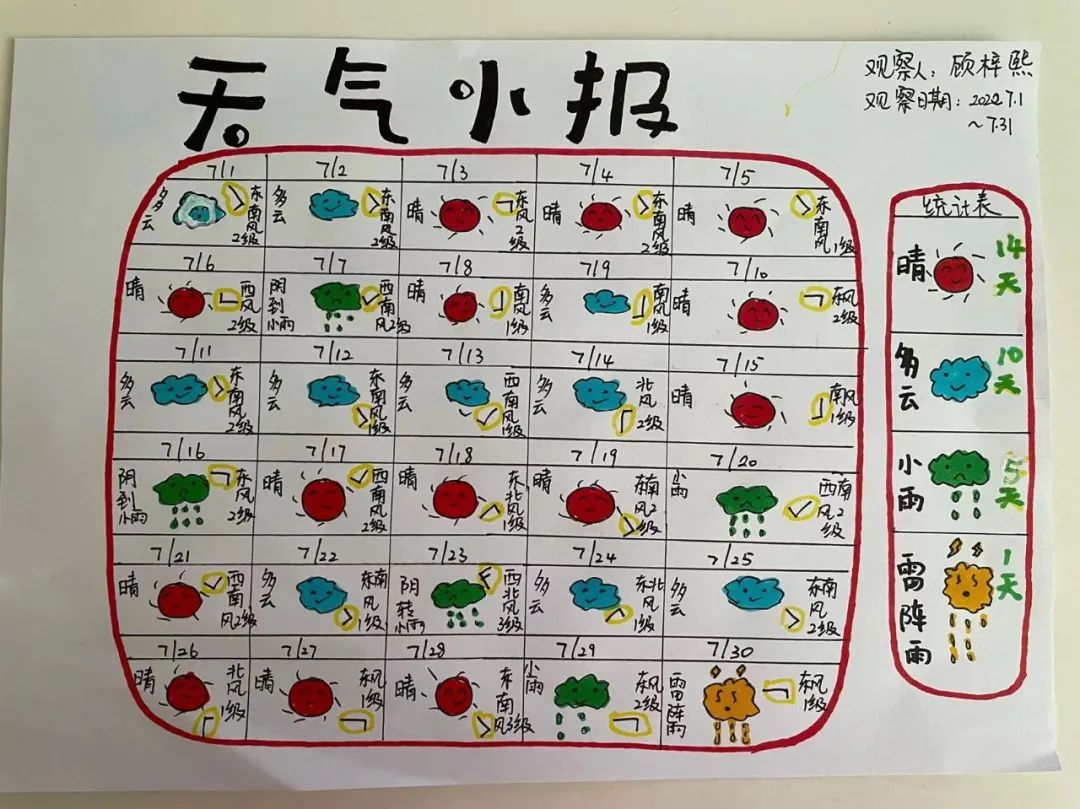 天气小报
观察人：顾梓熙
观察日期：2022.7.1
~7.31
7/1 7/2 7/3 7/4 7/5
多云 东南风2级
多云 东南风2级
晴 东风2级
晴 东南风2级
晴 东南风1级
7/6 7/7 7/8 7/9 7/10
晴 西风2级
阴到小雨 西南风2级
晴 南风1级
多云 南风1级
晴 东风2级
7/11 7/12 7/13 7/14 7/15
多云 东南风2级
多云 东南风1级
多云 西南风1级
多云 北风2级
晴 南风1级
7/16 7/17 7/18 7/19 7/20
阴到小雨 东风2级
晴 西南风2级
晴 东北风1级
晴 东南风2级
小雨 西南风2级
7/21 7/22 7/23 7/24 7/25
晴 西南风2级
多云 东南风1级
阴转小雨 西北风3级
多云 东北风1级
多云 东南风2级
7/26 7/27 7/28 7/29 7/30
晴 北风1级
晴 东风1级
晴 东南风3级
小雨 东风2级
雷阵雨 东风1级
统计表
晴 14天
多云 10天
小雨 5天
雷阵雨 1天